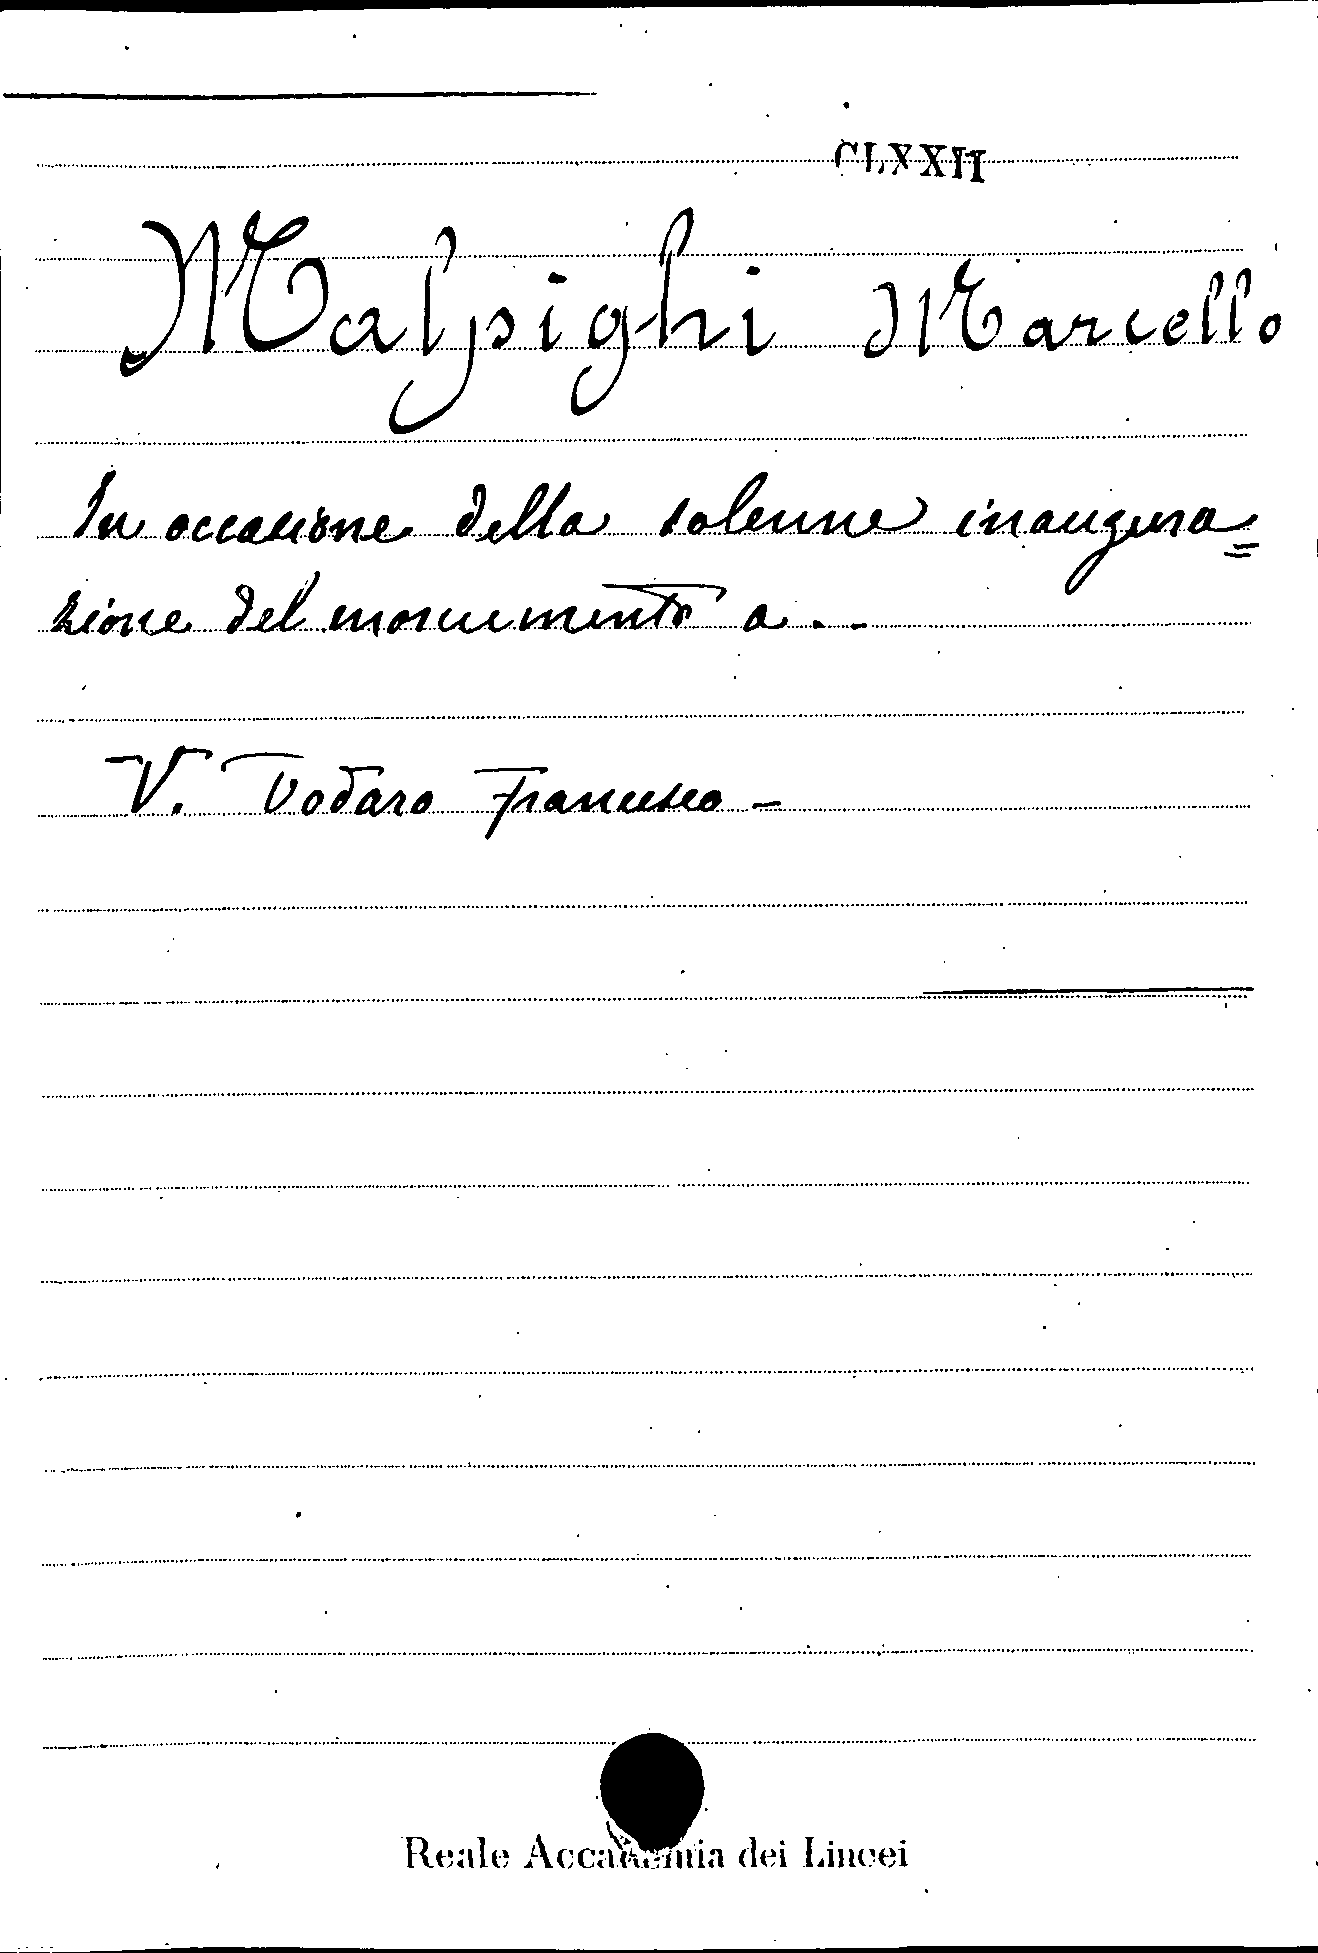 CLXXII
Malpighi Marcello
In occasione della solenne inaugura=
zione del monumento a...
V. Todaro Francesco -
Reale Accademia dei Lincei